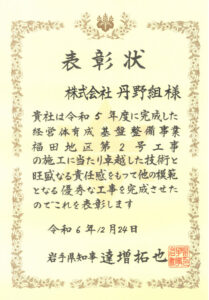 表彰状
株式会社 丹野組様
貴社は令和5年度に完成した
経営体育成基盤整備事業
福田地区第2号工事
の施工に当たり卓越した技術と
旺盛なる責任感をもって他の模範
となる優秀な工事を完成させた
のでこれを表彰します
令和6年12月24日
岩手県知事 達増拓也